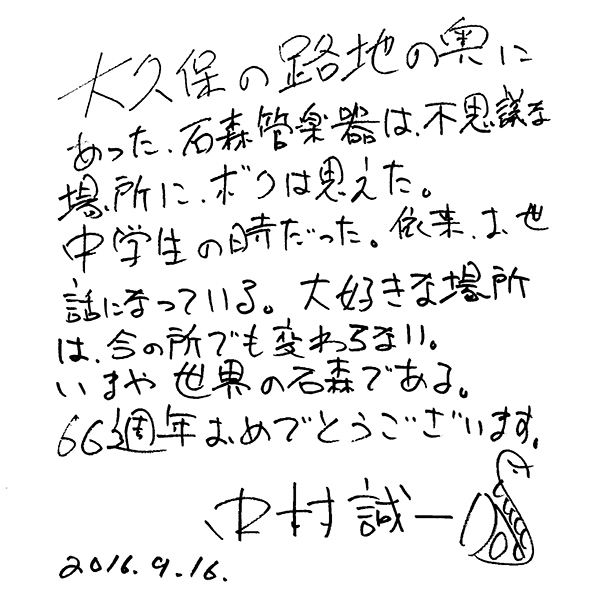 大久保の路地の奥に
あった、石森管楽器は、不思議な
場所に、ボクは思えた。
中学生の時だった。依来、お世
話になっている。大好きな場所
は、今の所でも変わらない。
いまや世界の石森である。
66週年おめでとうございます。
中村誠一
2016.9.16.